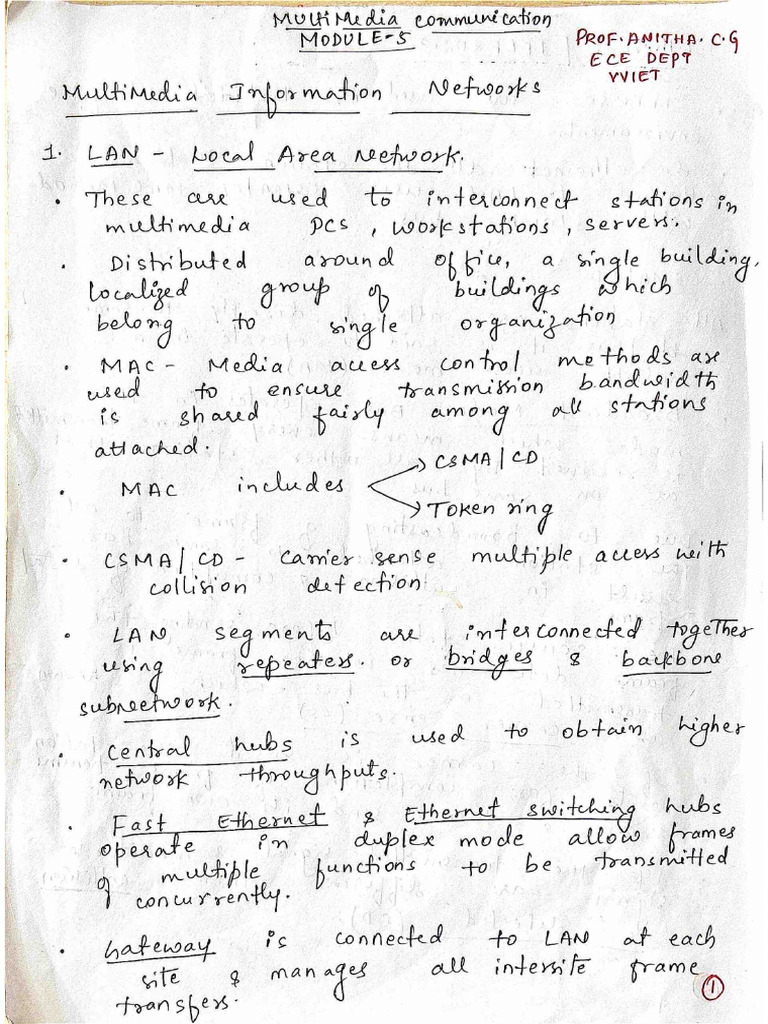 MultiMedia Communication
MODULE-5
PROF. ANITHA. C.G
ECE DEPT
VVIET
MultiMedia Information Networks
1. LAN - Local Area Network.
• These are used to interconnect stations in
multimedia PCS, workstations, servers.
• Distributed around office, a single building,
localized group of buildings which
belong to single organization
• MAC - Media access control methods are
used to ensure transmission bandwidth
is shared fairly among all stations
attached.
• MAC includes → CSMA/CD
→ Token ring
• CSMA/CD - carrier sense multiple access with
collision detection
• LAN segments are interconnected together
using repeaters or bridges & backbone
subnetwork.
• Central hubs is used to obtain higher
network throughputs.
• Fast Ethernet & Ethernet switching hubs
operate in duplex mode allow frames
of multiple functions to be transmitted
concurrently.
• Gateway is connected to LAN at each
site & manages all intersite frame
transfers.
1